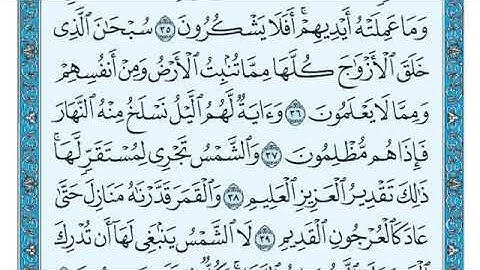 وَمَا عَمِلَتْهُ أَيْدِيهِمْ ۖ أَفَلَا يَشْكُرُونَ ٣٥ سُبْحَانَ الَّذِي
خَلَقَ الْأَزْوَاجَ كُلَّهَا مِمَّا تُنْبِتُ الْأَرْضُ وَمِنْ أَنْفُسِهِمْ
وَمِمَّا لَا يَعْلَمُونَ ٣٦ وَءَايَةٌ لَّهُمُ الَّيْلُ نَسْلَخُ مِنْهُ النَّهَارَ
فَإِذَا هُم مُّظْلِمُونَ ٣٧ وَالشَّمْسُ تَجْرِي لِمُسْتَقَرٍّ لَّهَا ۚ
ذَٰلِكَ تَقْدِيرُ الْعَزِيزِ الْعَلِيمِ ٣٨ وَالْقَمَرَ قَدَّرْنَاهُ مَنَازِلَ حَتَّىٰ
عَادَ كَالْعُرْجُونِ الْقَدِيمِ ٣٩ لَا الشَّمْسُ يَنْبَغِي لَهَا أَن تُدْرِكَ